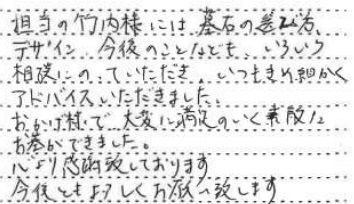 担当の竹内様には 墓石の選び方、
デザイン、今後のことなども、いろいろ
相談にのっていただき、いつもきめ細かく
アドバイスいただきました。
おかげ様で、大変に満足のいく素敵な
お墓ができました。
心より感謝致しております
今後ともよろしくお願い致します